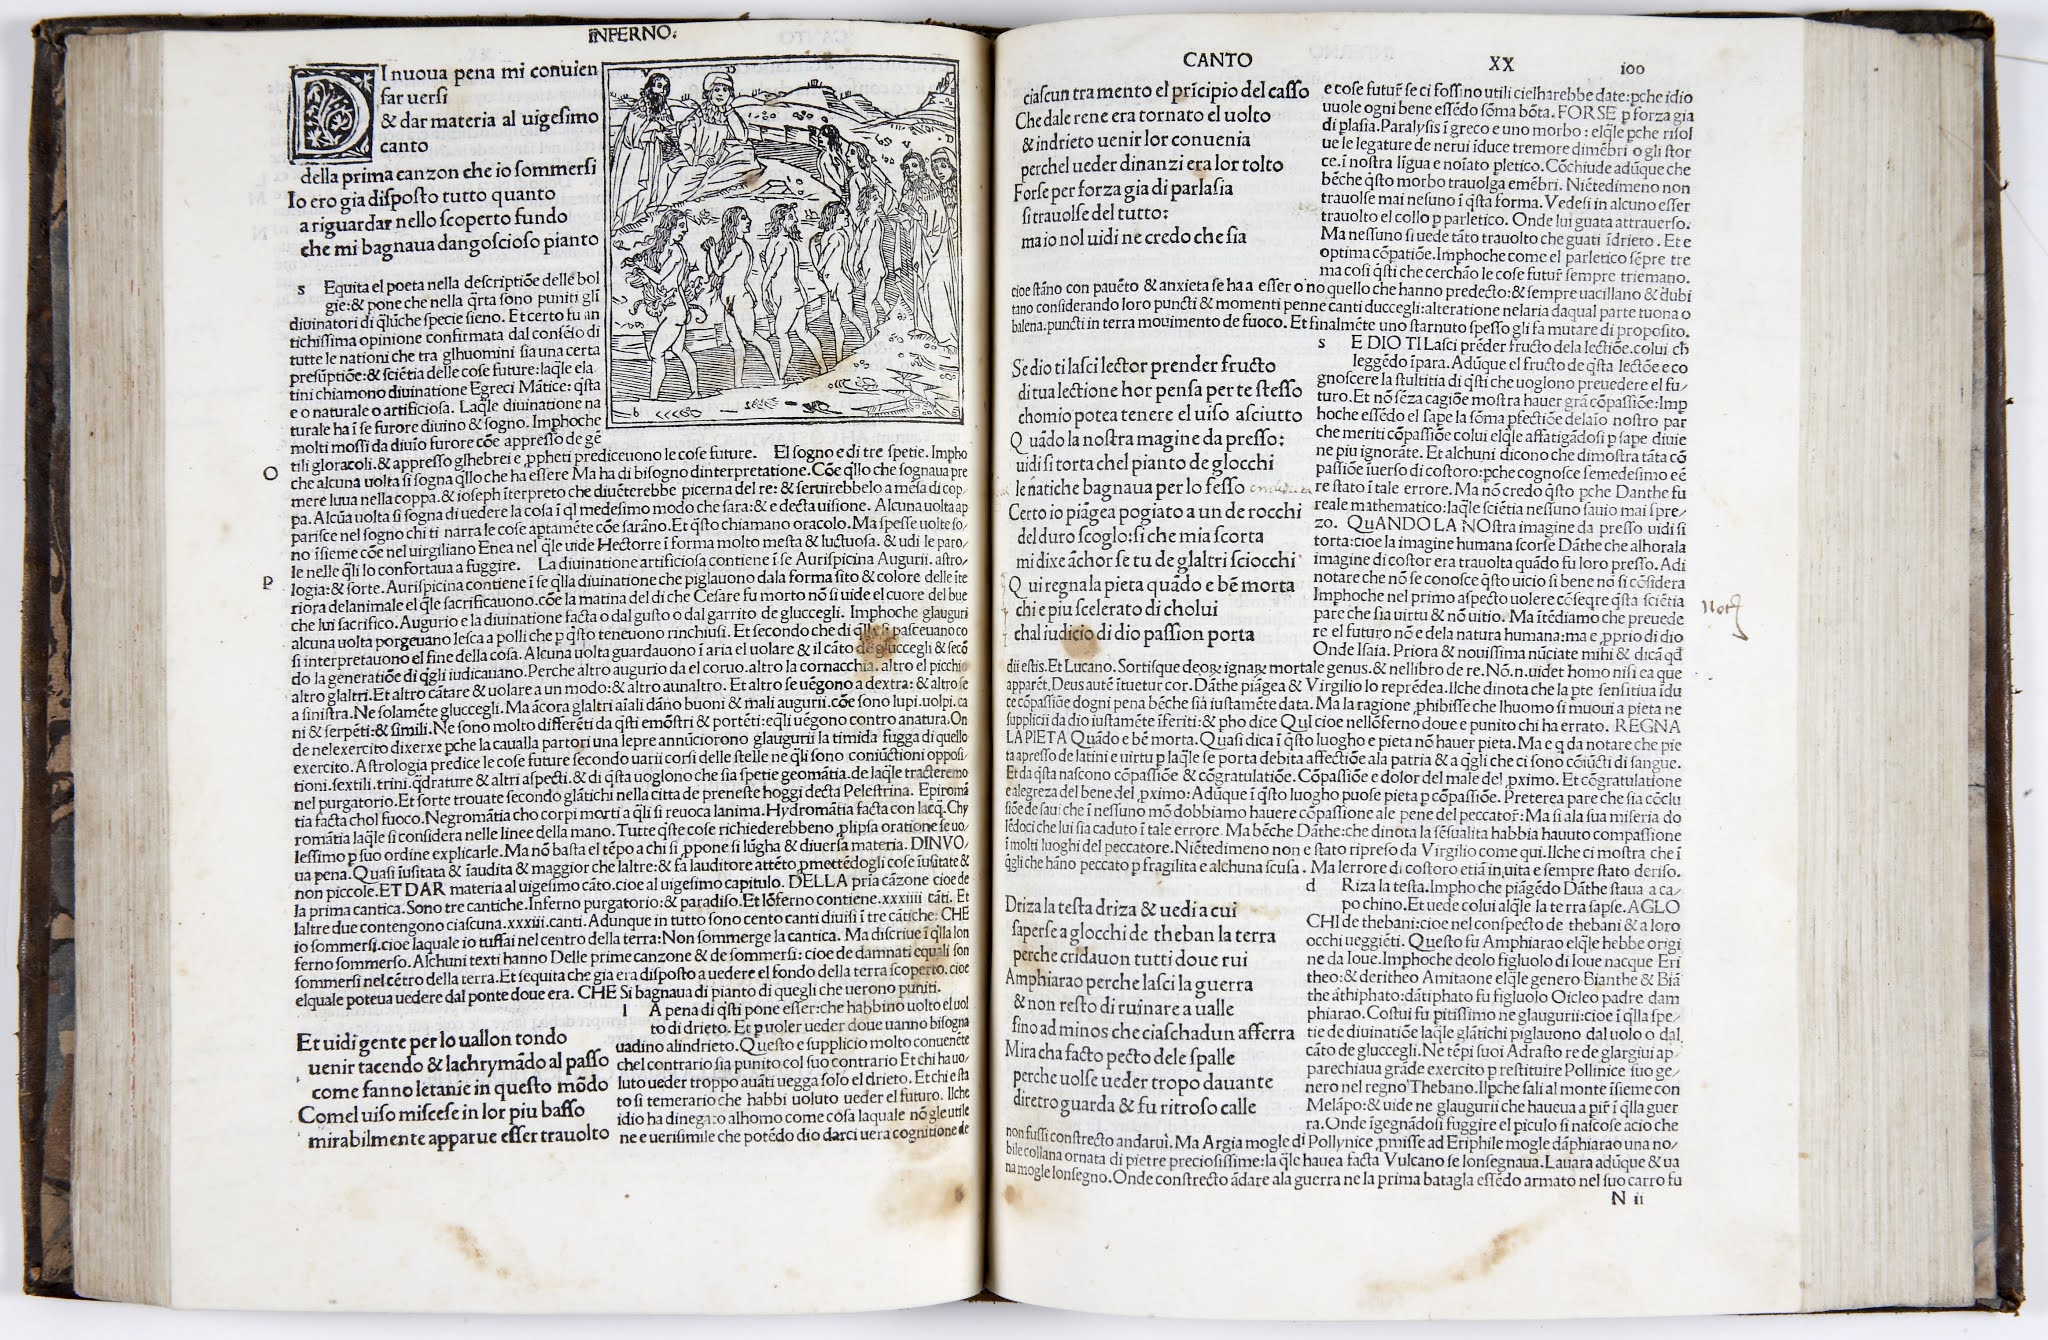 INFERNO.
DI nuoua pena mi conuien
far uersi
& dar materia al uigesimo
canto
della prima canzon che io sommersi
Io ero gia disposto tutto quanto
a riguardar nello scoperto fundo
che mi bagnaua dangoscioso pianto
s Equita el poeta nella descriptiõe delle bol
gie:& pone che nella q̃rta sono puniti gli
diuinatori di q̃lũche specie sieno. Et certo fu an
tichissima opinione confirmata dal consẽso di
tutte le nationi che tra glhuomini sia una certa
presũptiõe:& sciẽtia delle cose future:laq̃le ela
tini chiamono diuinatione Egreci Mãtice: q̃sta
e o naturale o artificiosa. Laq̃le diuinatione na
turale ha ĩ se furore diuino & sogno. Imphoche
molti mossi da diuĩo furore cõe appresso de gẽ
tili gloracoli.& appresso glhebrei e ꝓpheti prediceuono le cose future. El sogno e di tre spetie. Impho
O che alcuna uolta si sogna q̃llo che ha essere Ma ha di bisogno dinterpretatione. Cõe q̃llo che sognaua pre
mere luua nella coppa.& ioseph ĩterpreto che diuẽterebbe picerna del re: & seruirebbelo a mẽsa di cop/
pa. Alcũa uolta si sogna di uedere la cosa ĩ q̃l medesimo modo che sara:& e decta uisione. Alcuna uolta ap
parisce nel sogno chi ti narra le cose aptamẽte cõe sarãno. Et q̃sto chiamano oracolo. Ma spesse uolte so/
no ĩsieme cõe nel uirgiliano Enea nel q̃le uide Hectorre ĩ forma molto mesta & luctuosa. & udi le paro/
le nelle q̃li lo confortaua a fuggire. La diuinatione artificiosa contiene ĩ se Aurispicina Augurii. astro/
P logia:& sorte. Aurispicina contiene ĩ se q̃lla diuinatione che piglauono dala forma sito & colore delle ĩte
riora delanimale el q̃le sacrificauono.cõe la matina del di che Cesare fu morto nõ si uide el cuore del bue
che lui sacrifico. Augurio e la diuinatione facta o dal gusto o dal garrito de gluccegli. Imphoche glauguri
alcuna uolta porgeuano lesca a polli che p q̃sto teneuono rinchiusi. Et secondo che di q̃lla si pasceuano co
si interpretauono el fine della cosa. Alcuna uolta guardauono ĩ aria el uolare & il cãto de gluccegli & secõ
do la generatiõe di q̃gli iudicauano. Perche altro augurio da el coruo.altro la cornacchia. altro el picchio
altro glaltri. Et altro cãtare & uolare a un modo:& altro aunaltro. Et altro se uẽgono a dextra: & altro se
a sinistra. Ne solamẽte gluccegli. Ma ãcora glaltri aĩali dãno buoni & mali augurii.cõe sono lupi.uolpi. ca
ni & serpẽti:& simili. Ne sono molto differẽti da q̃sti emõstri & portẽti:eq̃li uẽgono contro anatura. On
de nelexercito dixerxe pche la caualla partori una lepre annũciorono glaugurii la timida fugga di quello
exercito. Astrologia predice le cose future secondo uarii corsi delle stelle ne q̃li sono coniũctioni opposi/
tioni.sextili.trini.q̃drature & altri aspecti.& di q̃sta uoglono che sia spetie geomãtia.de laq̃le tracteremo
nel purgatorio.Et sorte trouate secondo glãtichi nella citta de preneste hoggi decta Pelestrina. Epiromã
tia facta chol fuoco. Negromãtia cho corpi morti a q̃li si reuoca lanima. Hydromãtia facta con lacq̃. Chy
romãtia laq̃le si considera nelle linee della mano. Tutte q̃ste cose richiederebbeno ꝓlipsa oratione se uo/
lessimo p suo ordine explicarle. Ma nõ basta el tẽpo a chi si ꝓpone si lũgha & diuersa materia. DINVO/
ua pena. Quasi ĩusitata & ĩaudita & maggior che laltre:& fa lauditore attẽto ꝓmettẽdogli cose ĩusitate &
non piccole. ET DAR materia al uigesimo cãto.cioe al uigesimo capitulo. DELLA pria cãzone cioe de
la prima cantica. Sono tre cantiche. Inferno purgatorio:& paradiso. Et lõferno contiene.xxxiiii cãti. Et
laltre due contengono ciascuna.xxxiii.canti. Adunque in tutto sono cento canti diuisi ĩ tre cãtiche: CHE
io sommersi.cioe laquale io tuffai nel centro della terra:Non sommerge la cantica. Ma discriue ĩ q̃lla lon
ferno sommerso. Alchuni texti hanno Delle prime canzone & de sommersi: cioe de damnati equali son
sommersi nel cẽtro della terra.Et sequita che gia era disposto a uedere el fondo della terra scoperto.cioe
elquale poteua uedere dal ponte doue era. CHE Si bagnaua di pianto di quegli che uerono puniti.
Et uidi gente per lo uallon tondo
uenir tacendo & lachrymãdo al passo
come fanno letanie in questo mõdo
Comel uiso miscese in lor piu basso
mirabilmente apparue esser trauolto
l A pena di q̃sti pone esser:che habbino uolto el uol
to di drieto. Et p uoler ueder doue uanno bisogna
uadino alindrieto. Questo e supplicio molto conuenẽte
chel contrario sia punito col suo contrario Et chi ha uo/
luto ueder troppo auãti uegga solo el drieto. Et chi e sta
to si temerario che habbi uoluto ueder el futuro. Ilche
idio ha dinegato alhomo come cosa laquale nõ gle utile
ne e uerisimile che potẽdo dio darci uera cognitione de
CANTO XX 100
ciascun tra mento el prĩcipio del casso
Che dale rene era tornato el uolto
& indrieto uenir lor conuenia
perchel ueder dinanzi era lor tolto
Forse per forza gia di parlasia
si trauolse del tutto:
ma io nol uidi ne credo che sia
e cose futur̃ se ci fossino utili cielharebbe date:pche idio
uuole ogni bene essẽdo sõma bõta. FORSE p forza gia
di plasia. Paralysis ĩ greco e uno morbo : elq̃le pche risol
ue le legature de nerui ĩduce tremore dimẽbri o gli stor
ce.ĩ nostra lĩgua e noĩato pletico. Cõchiude adũque che
bẽche q̃sto morbo trauolga emẽbri. Niẽtedimeno non
trauolse mai nesuno ĩ q̃sta forma. Vedesi in alcuno esser
trauolto el collo p parletico. Onde lui guata attrauerso.
Ma nessuno si uede tãto trauolto che guati ĩdrieto . Et e
optima cõpatiõe. Imphoche come el parletico sẽpre tre
ma cosi q̃sti che cerchão le cose futur̃ sempre triemano.
cioe stãno con pauẽto & anxieta se ha a esser o no quello che hanno predecto:& sempre uacillano & dubi
tano considerando loro puncti & momenti penne canti duccegli:alteratione nelaria daqual parte tuona o
balena.puncti in terra mouimento de fuoco. Et finalmẽte uno starnuto spesso gli fa mutare di proposito.
Se dio ti lasci lector prender fructo
di tua lectione hor pensa per te stesso
chomio potea tenere el uiso asciutto
Quãdo la nostra magine da presso:
uidi si torta chel pianto de glocchi
le natiche bagnaua per lo fesso
Certo io piãgea pogiato a un de rocchi
del duro scoglo:si che mia scorta
mi dixe ãchor se tu de glaltri sciocchi
Qui regna la pieta quãdo e bẽ morta
chi e piu scelerato di cholui
chal iudicio di dio passion porta
s E DIO TI Lasci prẽder fructo dela lectiõe.colui ch̃
leggẽdo ĩpara. Adũque el fructo de q̃sta lectõe e co
gnoscere la stultitia di q̃sti che uoglono preuedere el fu/
turo. Et nõ sẽza cagiõe mostra hauer grã cõpassiõe:Imp
hoche essẽdo el sape la sõma pfectiõe delaĩo nostro par
che meriti cõpassiõe colui elq̃le affatigãdosi p sape diuie
ne piu ignorãte. Et alchuni dicono che dimostra tãta cõ
passiõe ĩuerso di costoro:pche cognosce semedesimo eẽ
re stato ĩ tale errore. Ma nõ credo q̃sto pche Danthe fu
reale mathematico:laq̃le sciẽtia nessuno sauio mai spre/
zo. QuANDO LA NOstra imagine da presso uidi si
torta:cioe la imagine humana scorse Dãthe che alhorala
imagine di costor era trauolta quãdo fu loro presso. Adi
notare che nõ se conosce q̃sto uicio si bene nõ si cõsidera
Imphoche nel primo aspecto uolere cõseqre q̃sta sciẽtia
pare che sia uirtu & nõ uitio. Ma itẽdiamo che preuede
re el futuro nõ e dela natura humana:ma e ꝓprio di dio
Onde Isaia. Priora & nouissima nũciate mihi & dicã q̃d
dii estis. Et Lucano. Sortisque deoꝝ ignaꝝ mortale genus. & nellibro de re. Nõ.n.uidet homo nisi ea que
apparẽt. Deus autẽ ĩtuetur cor. Dãthe piãgea & Virgilio lo reprẽdea. Ilche dinota che la pte sensitiua ĩdu
ce cõpassiõe dogni pena bẽche sia iustamẽte data. Ma la ragione ꝓhibisse che lhuomo si muoui a pieta ne
supplicii da dio iustamẽte ĩferiti:& pho dice QuI cioe nellõferno doue e punito chi ha errato. REGNA
LA PIETA Quãdo e bẽ morta. Quasi dica ĩ q̃sto luogho e pieta nõ hauer pieta. Ma e q da notare che pie
ta apresso de latini e uirtu p laq̃le se porta debita affectiõe ala patria & a q̃gli che ci sono cõiũcti di sangue.
Et da q̃sta nascono cõpassiõe & cõgratulatiõe. Cõpassiõe e dolor del male del ꝓximo. Et cõgratulatione
e alegreza del bene del ꝓximo: Adũque ĩ q̃sto luogho puose pieta p cõpassiõe. Preterea pare che sia cõclu
siõe de saui che ĩ nessuno mõ dobbiamo hauere cõpassiõe ale pene del peccator̃: Ma si ala sua miseria do
lẽdoci che lui sia caduto ĩ tale errore. Ma bẽche Dãthe:che dinota la sẽsualita habbia hauuto compassione
ĩ molti luoghi del peccatore. Niẽtedimeno non e stato ripreso da Virgilio come qui. Ilche ci mostra che ĩ
q̃gli che hãno peccato p fragilita e alchuna scusa . Ma lerrore di costoro etiã in uita e sempre stato deriso.
Driza la testa driza & uedi a cui
saperse a glocchi de theban la terra
perche cridauon tutti doue rui
Amphiarao perche lasci la guerra
& non resto di ruinare a ualle
fino ad minos che ciaschadun afferra
Mira cha facto pecto dele spalle
perche uolse ueder tropo dauante
diretro guarda & fu ritroso calle
d Riza la testa. Impho che piãgẽdo Dãthe staua a ca/
po chino. Et uede colui alq̃le la terra sapse. AGLO
CHI de thebani:cioe nel conspecto de thebani & a loro
occhi ueggiẽti. Questo fu Amphiarao elq̃le hebbe origi
ne da Ioue. Imphoche deolo figluolo di Ioue nacque Eri
theo:& deritheo Amitaone elq̃le genero Bianthe & Biã
the ãthiphato:dãtiphato fu figluolo Oicleo padre dam
phiarao. Costui fu pitissimo ne glaugurii:cioe ĩ q̃lla spe/
tie de diuinatiõe laq̃le glãtichi piglauono dal uolo o dal
cãto de gluccegli. Ne tẽpi suoi Adrasto re de glargiui ap/
parechiaua grãde exercito p restituire Pollinice suo ge/
nero nel regno Thebano. Ilpche sali al monte ĩsieme con
Melãpo:& uide ne glaugurii che haueua a pir̃ ĩ q̃lla guer
ra. Onde ĩgegnãdosi fuggire el piculo si nascose acio che
non fussi constrecto andarui. Ma Argia mogle di Pollynice ꝓmisse ad Eriphile mogle dãphiarao una no/
bile collana ornata di pietre preciosissime:la q̃le hauea facta Vulcano se lonsegnaua. Lauara adũque & ua
na mogle lonsegno. Onde constrecto ãdare ala guerra ne la prima batagla essẽdo armato nel suo carro fu
N ii